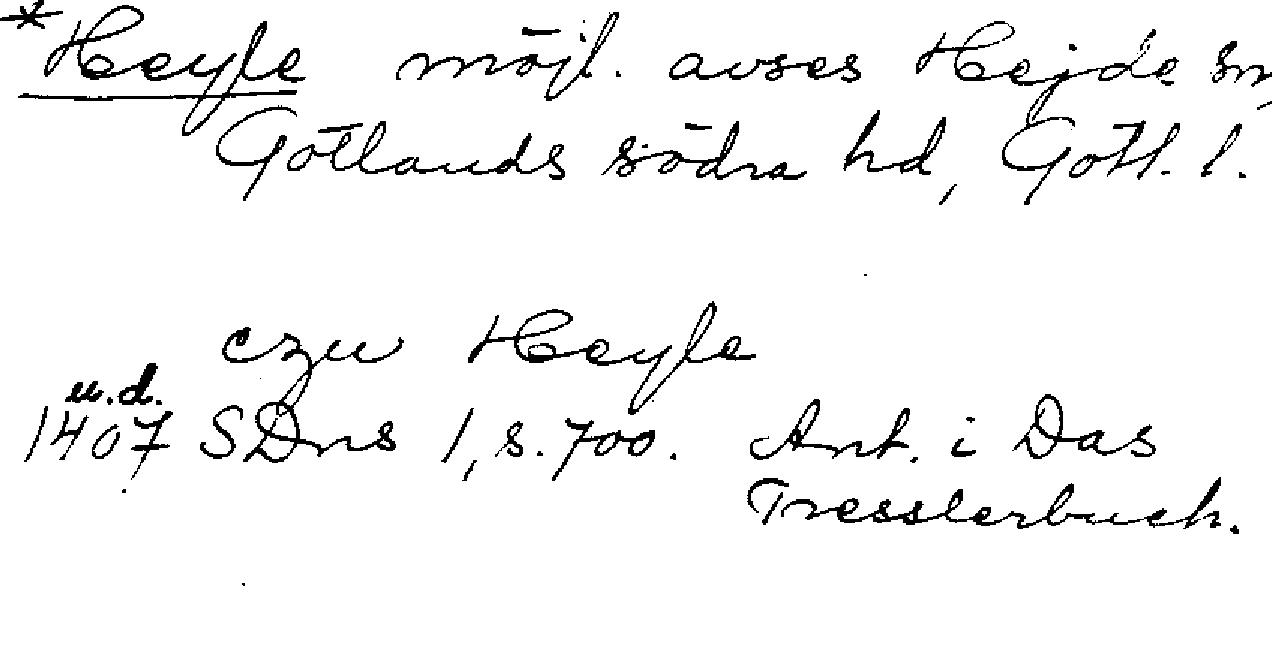 *Heyle möjl. avses Hejde sn,
Gotlands södra hd, Gotl. l.
czu Heyle
u.d.
1407 SDns 1, s. 700. Ant. i Das
Tresslerbuch.